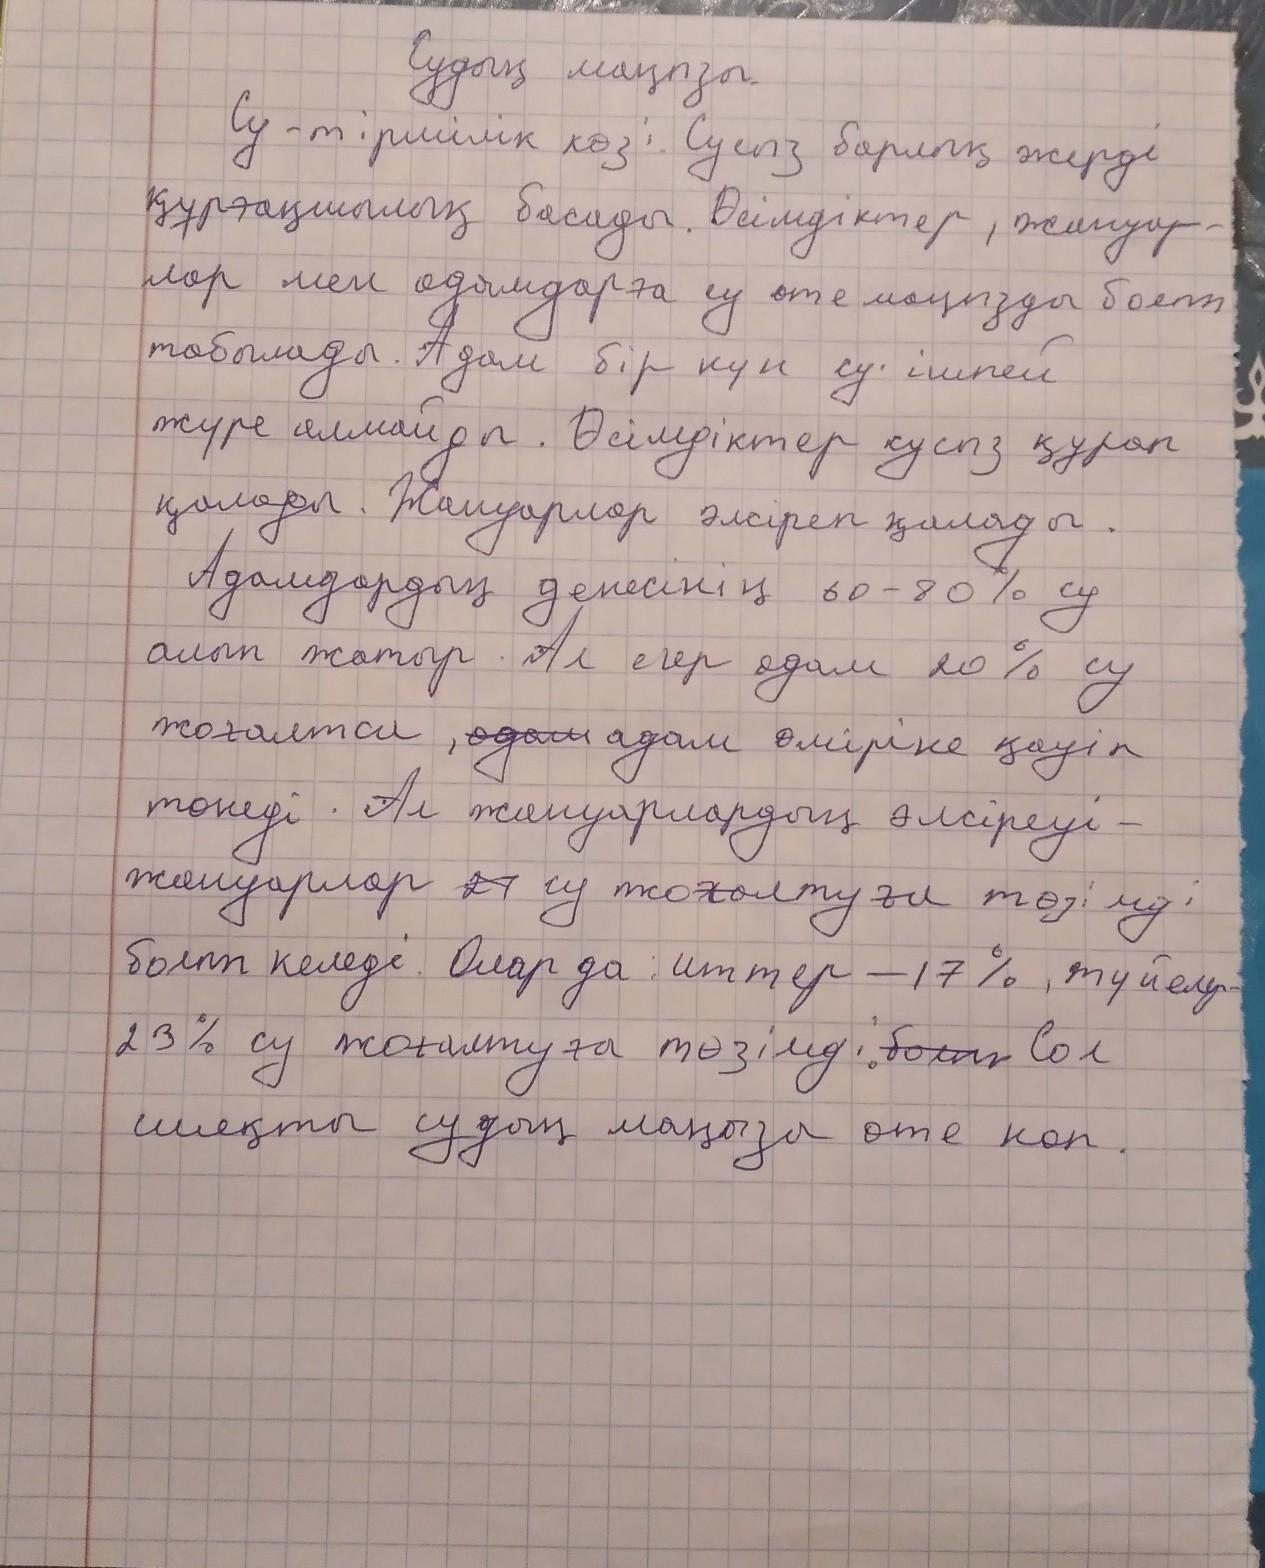 Судың маңызы
Су - тіршілік көзі. Сусыз барлық жерді
құрғақшылық басады. Өсімдіктер, жануар-
лар мен адамдарға су өте маңызды болып
табылады. Адам бір күн су ішпей
жүре алмайды. Өсімдіктер сусыз қурап
қалады. Жануарлар әлсіреп қалады.
Адамдардың денесінің 60-80% су
алып жатыр. Ал егер адам 20% су
жоғалтса, адам адам өміріне қауіп
төнеді. Ал жануарлардың әлсіреуі -
жануарлар су жоғалтуға төзімді
болып келеді. Оларда: иттер - 17%, түйелер-
23% су жоғалтуға төзімді. болып Сол
сияқты судың маңызы өте көп.